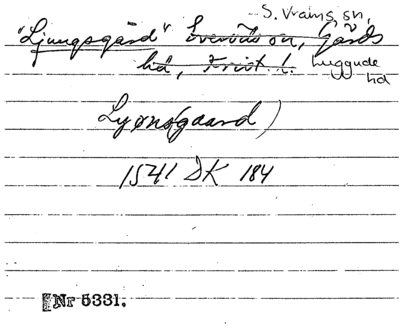 S. Vrams sn,
"Ljungsgård" Everöds sn, Gärds
hd, Krist. l. Luggude
hd
Lyønsgaard)
1541 DK 184
Nr 5331.